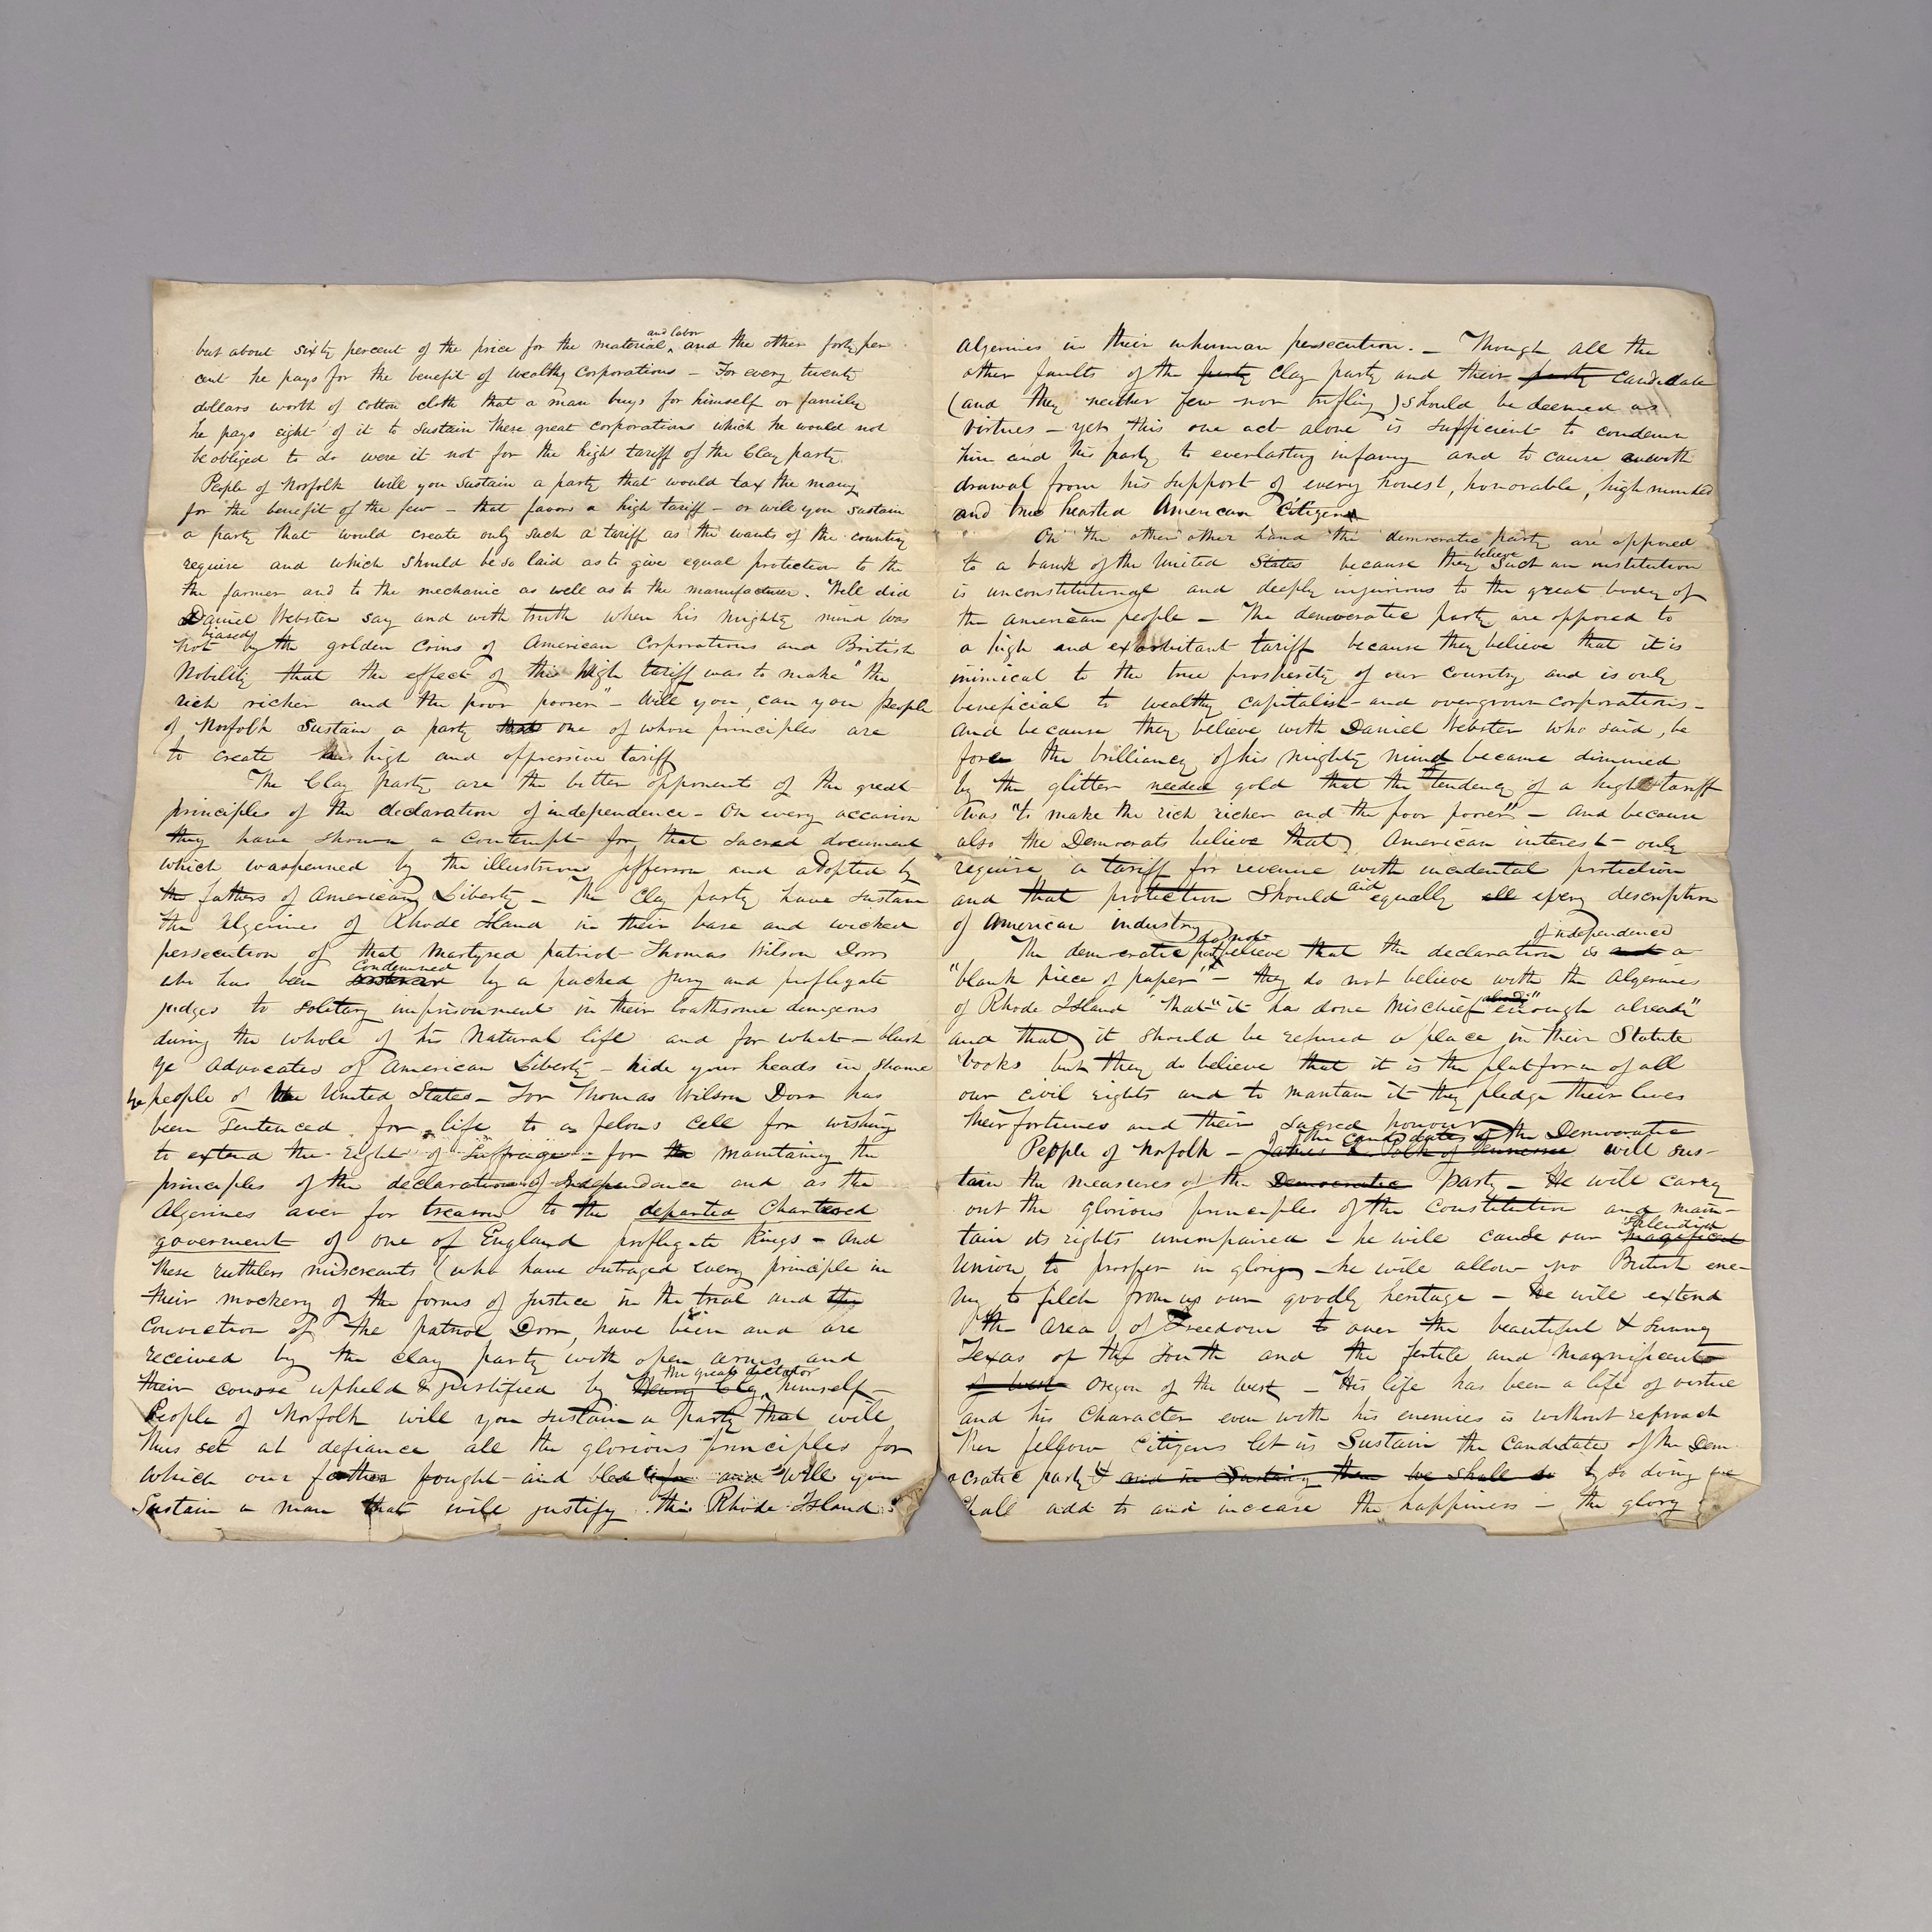 but about sixty percent of the price for the material and labor and the other forty per
cent he pays for the benefit of wealthy corporations – For every twenty
dollars worth of cotton cloth that a man buys for himself or family
he pays eight of it to sustain these great corporations which he would not
be obliged to do were it not for the high tariff of the Clay party
People of Norfolk will you sustain a party that would tax the many
for the benefit of the few – that favors a high tariff – or will you sustain
a party that would create only such a tariff as the wants of the country
require and which should be so laid as to give equal protection to the
the farmer and to the mechanic as well as to the manufacturer. Well did
Daniel Webster say and with truth when his mighty mind was
not biased by the golden coins of American Corporations and British
Nobility that the effect of this high tariff was to make "the
rich richer and the poor poorer" – Will you, can you people
of Norfolk Sustain a party that one of whose principles are
to create high and oppressive tariff
The Clay party are the bitter opponents of the great
principles of the declaration of independence – On every occasion
they have shown a contempt for that sacred document
which was penned by the illustrious Jefferson and adopted by
the fathers of American Liberty – The Clay party have sustain
the Algerines of Rhode Island in their base and wicked
persecution of that Martyred patriot Thomas Wilson Dorr
who has been condemned by a packed Jury and profligate
judges to solitary imprisonment in their loathsome dungeons
during the whole of his Natural life and for what – blush
ye advocates of American Liberty – hide your heads in shame
ye people of the United States – For Thomas Wilson Dorr has
been Sentenced for life to a felons cell for wishing
to extend the right of Suffrage – for the maintaining the
principles of the declaration of Independance and as the
Algerines aver for treason to the departed Chartered
goverment of one of England profligate Kings – And
these ruthless miscreants (who have outraged every principle in
their mockery of the forms of Justice in the trial and the
Conviction of the patriot Dorr, have been and are
received by the clay party with open arms and
their course upheld & justified by Henry Clay the great dictator himself –
People of Norfolk will you sustain a party that will
thus set at defiance all the glorious principles for
which our fathers fought and bled and Will you
Sustain a man that will justify this Rhode Island
Algerines in their inhuman persecution. – Though all the
other faults of the party Clay party and their party candidate
(and they neither few nor trifling) should be deemed as
virtues – yet this one act alone is sufficient to condemn
him and his party to everlasting infamy and to cause a with
drawal from his support of every honest, honorable, high minded
and true hearted American Citizen
On the other other hand the democratic party are opposed
to a bank of the United States because they believe such an institution
is unconstitutional and deeply injurious to the great body of
the american people – The democratic party are opposed to
a high and exorbitant tariff because they believe that it is
inimical to the true prosperity of our country and is only
beneficial to wealthy capitalist and overgrown corporations –
And because they believe with Daniel Webster who said, be
fore the brilliancy of his mighty mind became dimmed
by the glitter needed gold that the tendency of a high tariff
was "to make the rich richer and the poor poorer" – And because
also the Democrats believe that American interest only
require a tariff for revenue with incidental protection
and that protection should aid equally all every description
of American industry
The democratic party do not believe that the declaration of independence is a
"blank piece of paper" – they do not believe with the Algerines
of Rhode Island that "it has done mischief enough already"
and that it should be refused a place in their Statute
books but they do believe that it is the platform of all
our civil rights and to mantain it they pledge their lives
their fortunes and their sacred honour
People of Norfolk – James K Polk of Tennessee the candidates of the Democratic will sus-
tain the measures of the Democratic party – He will carry
out the glorious principles of the Constitution and main-
tain its rights unimpaired – he will cause our magnificent splendid
Union to prosper in glory – he will allow no British ene-
my to filch from us our goodly heritage – He will extend
the area of Freedom to over the beautiful & sunny
Texas of the South and the fertile and magnificent
of west Oregon of the west – His life has been a life of virtue
and his character even with his enemies is without reproach
Then fellow citizens let us Sustain the candidates of the Dem
ocratic party & and in Sustaing them we shall so by so doing we
shall add to and increase the happiness – the glory